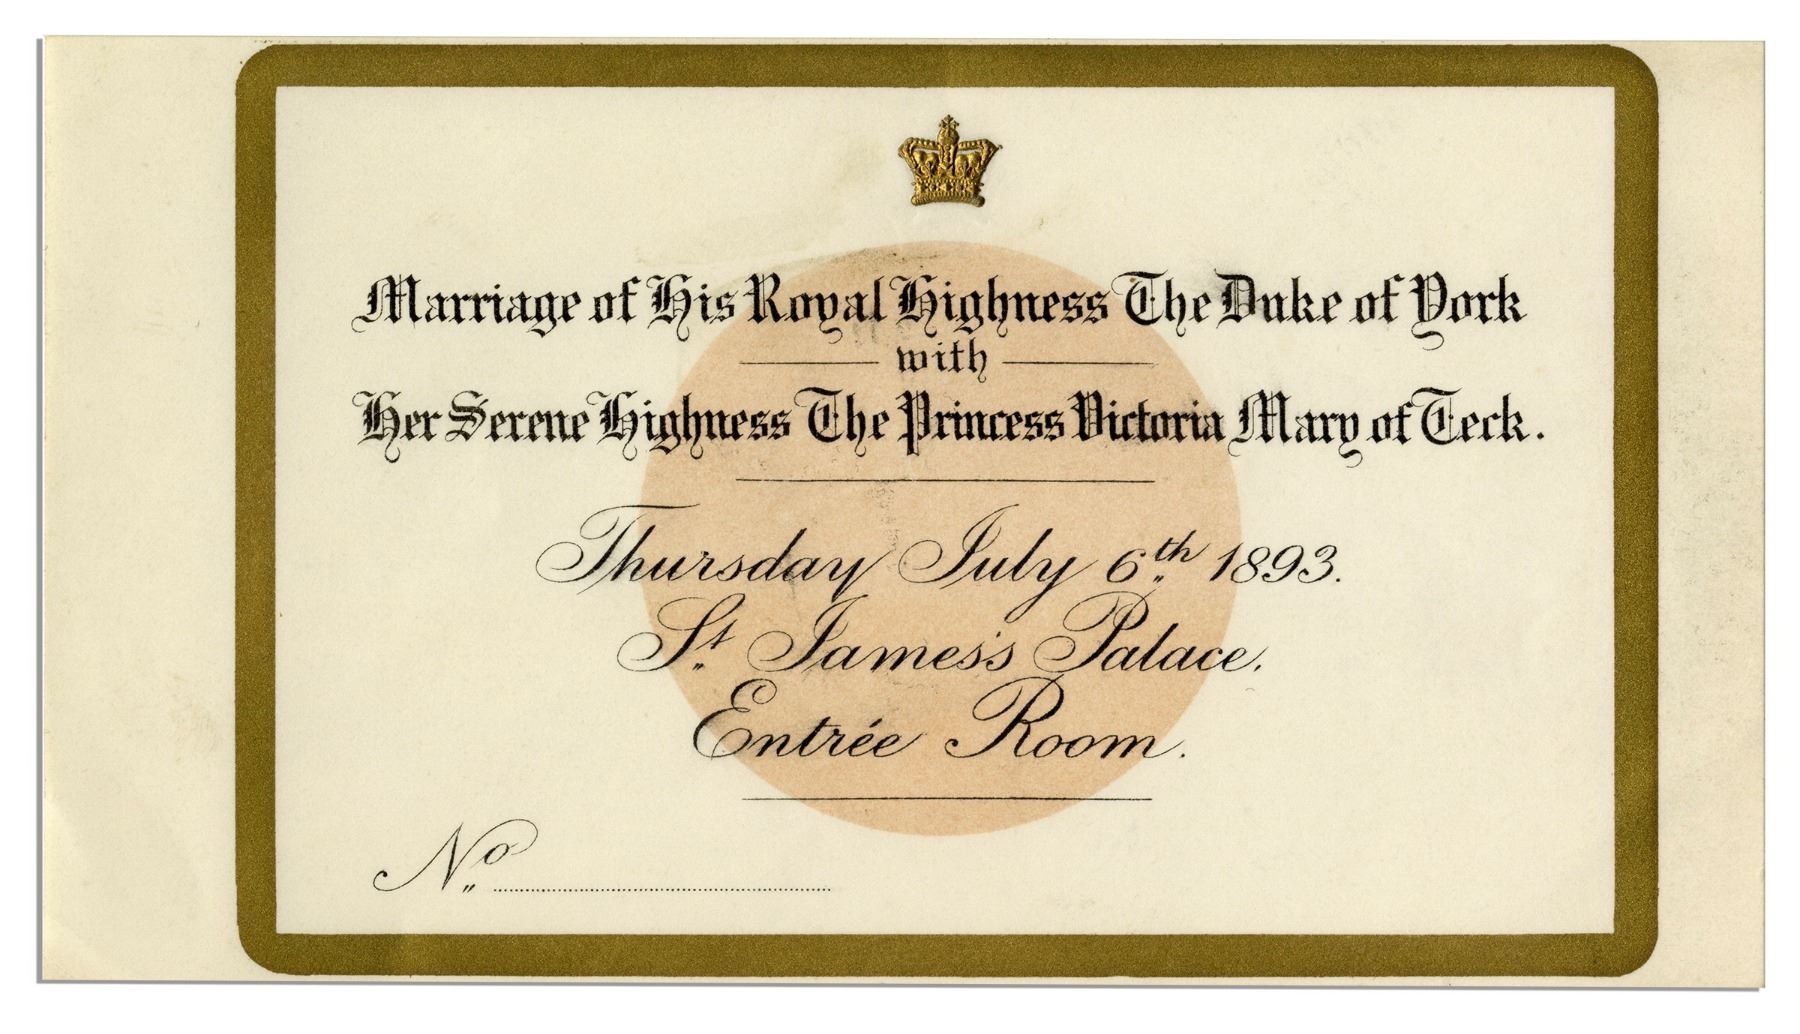 Marriage of His Royal Highness The Duke of York
with
Her Serene Highness The Princess Victoria Mary of Teck.
Thursday July 6th 1893.
St James's Palace.
Entrée Room.
No